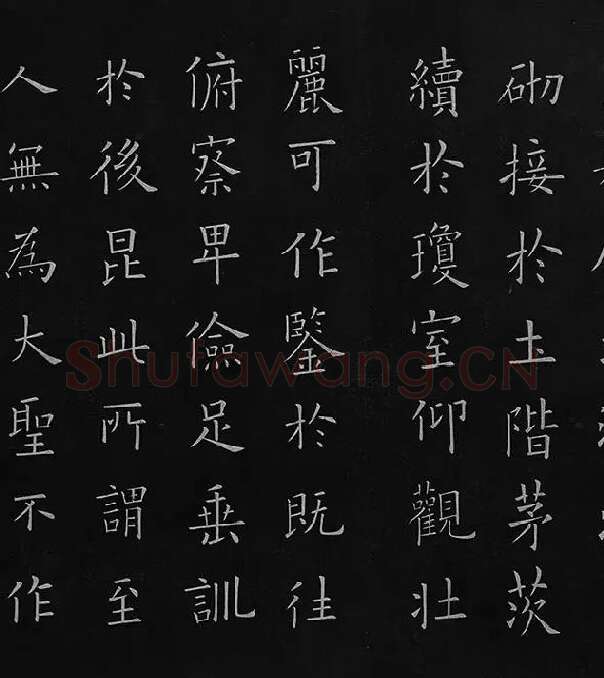 砌接於土階茅茨
續於瓊室仰觀壯
麗可作鑒於既往
俯察卑儉足垂訓
於後昆此所謂至
人無為大聖不作
Shufawang.CN